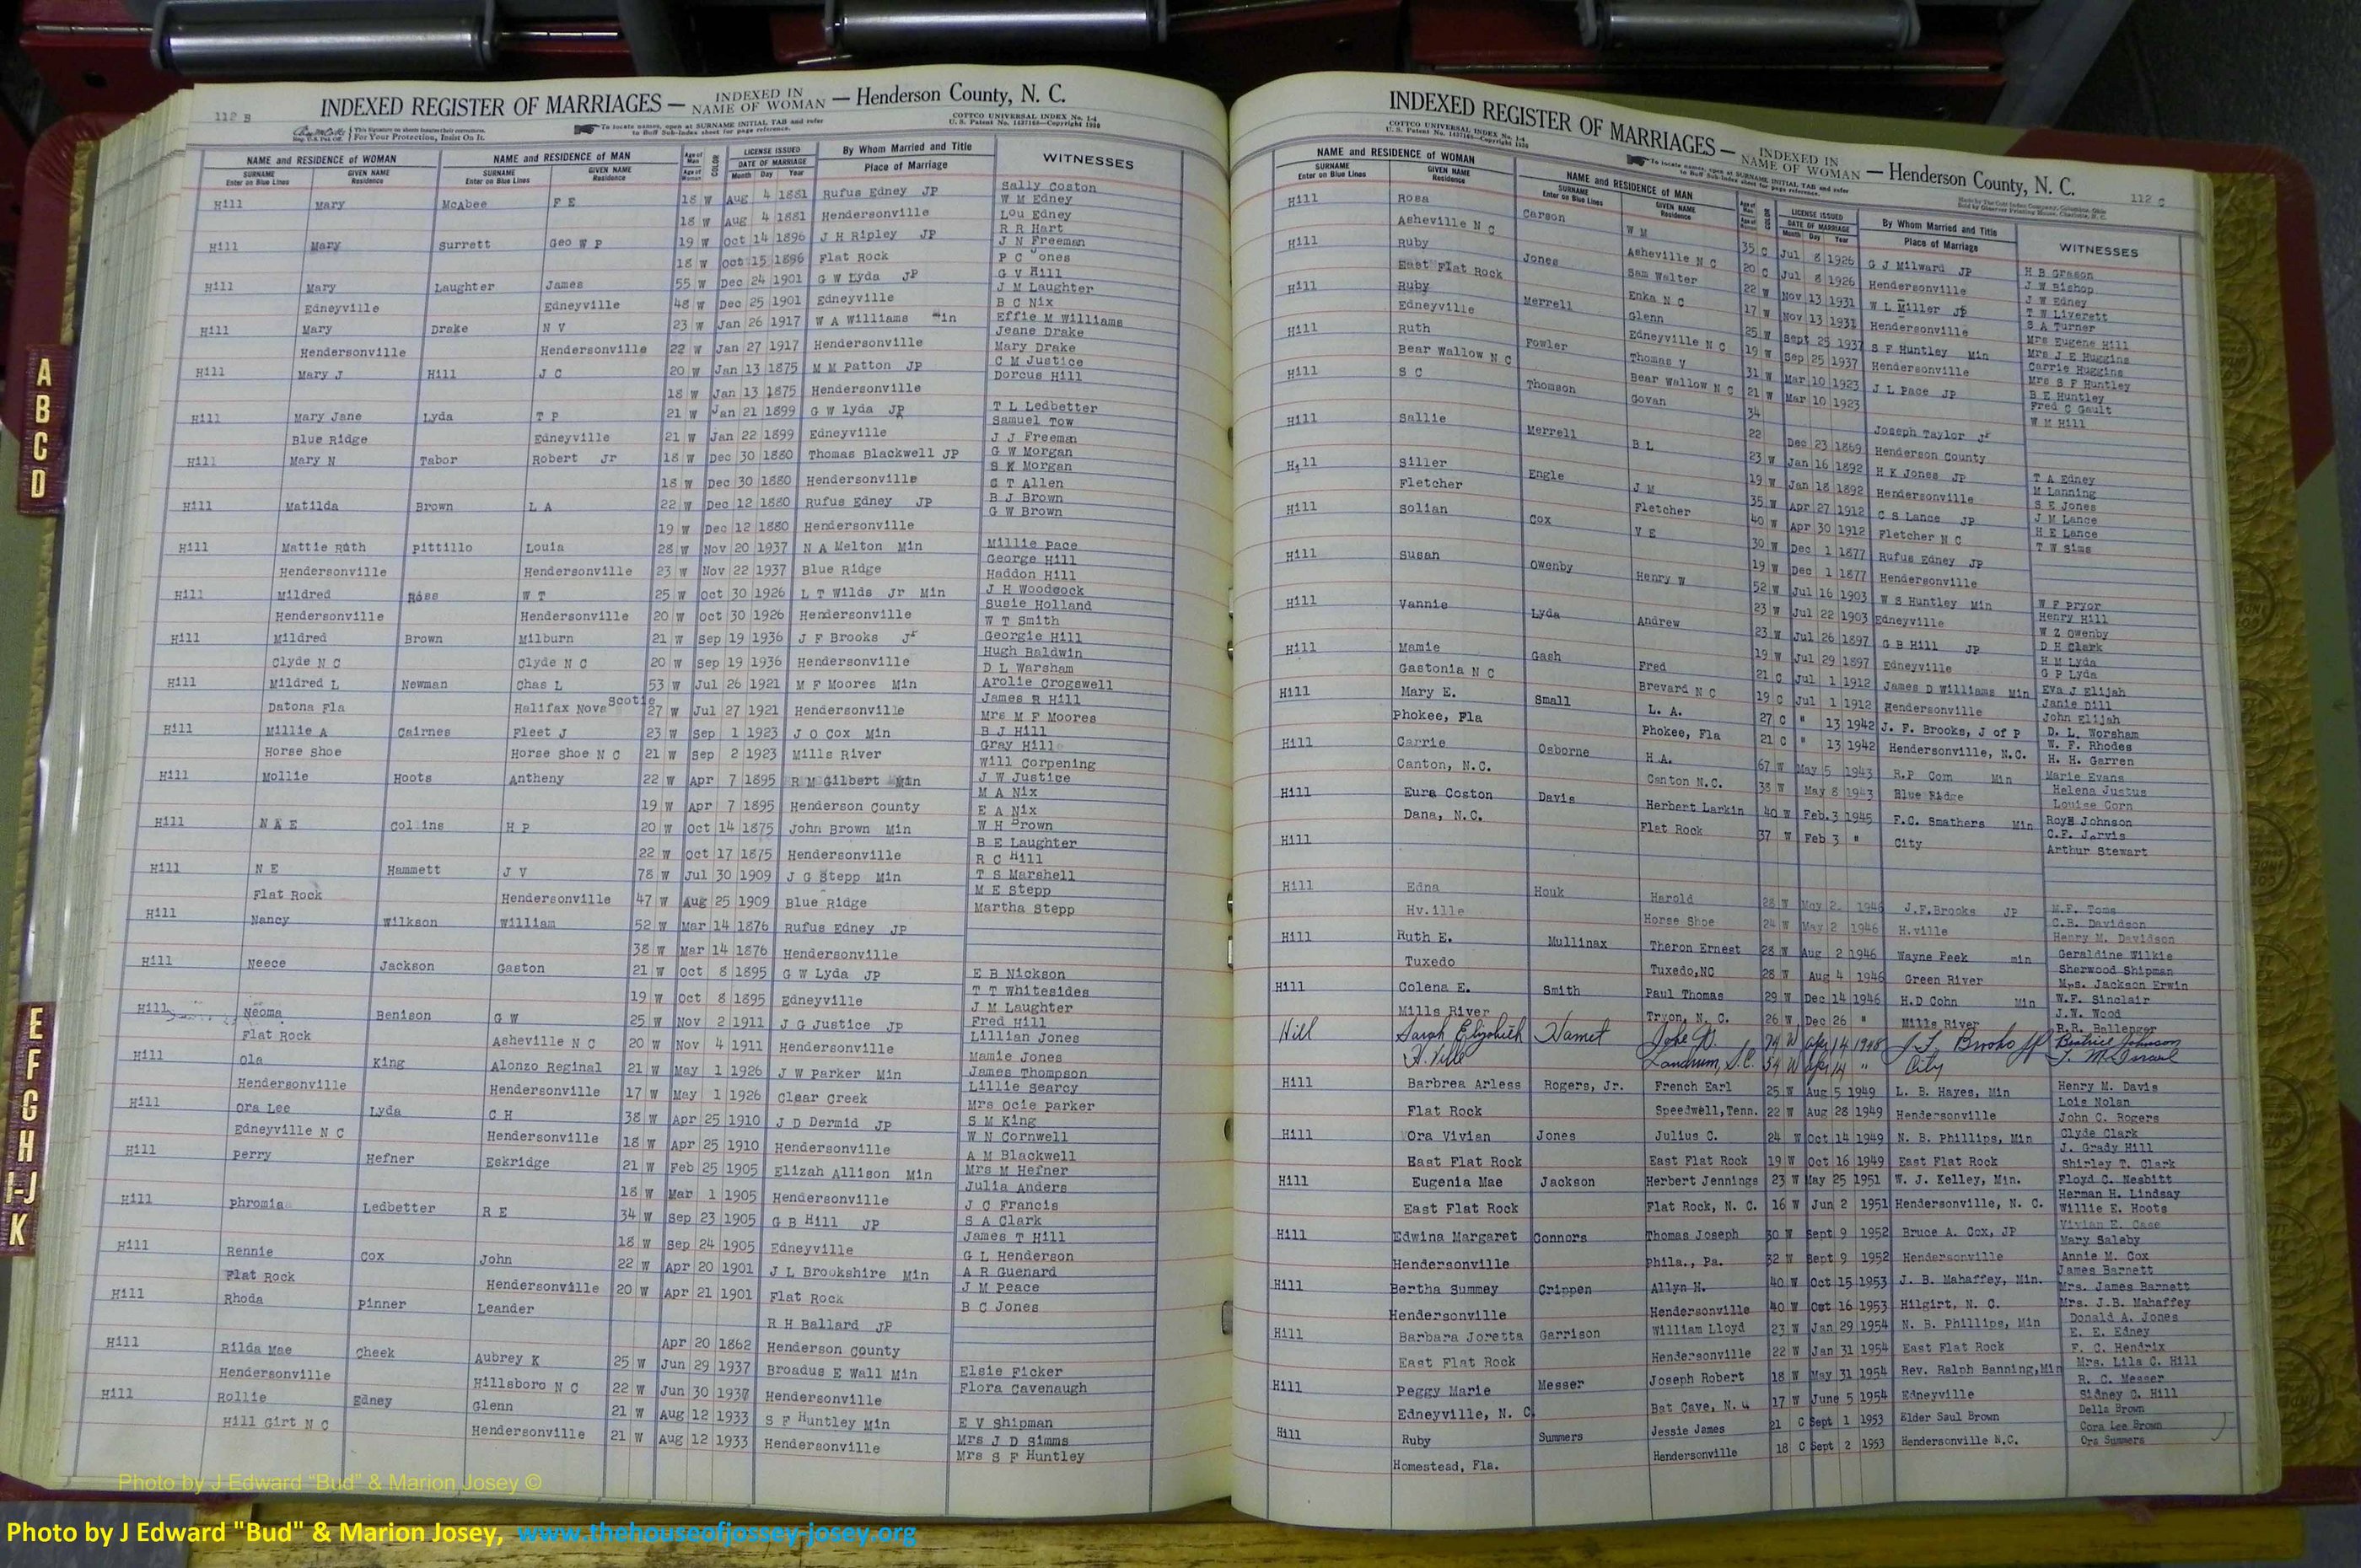 112 B
INDEXED REGISTER OF MARRIAGES — INDEXED IN NAME OF WOMAN — Henderson County, N. C.
For Your Protection, Insist On It.
To locate names, open at SURNAME INITIAL TAB and refer to Buff Sub-Index sheet for page reference.
COTTCO UNIVERSAL INDEX No. 1-4
NAME and RESIDENCE OF WOMAN NAME and RESIDENCE OF MAN LICENSE ISSUED By Whom Married and Title WITNESSES
SURNAME Enter on Blue Lines GIVEN NAME Residence SURNAME Enter on Blue Lines GIVEN NAME Residence Age of Man Age of Woman COLOR DATE OF MARRIAGE Month Day Year Place of Marriage
Hill Mary McAbee F E 18 W Aug 4 1881 Rufus Edney JP Sally Coston
W M Edney
18 W Aug 4 1881 Hendersonville Lou Edney
Hill Mary Surrett Geo W P 19 W Oct 14 1896 J H Ripley JP R R Hart
J N Freeman
18 W Oct 15 1896 Flat Rock P C Jones
Hill Mary Laughter James 55 W Dec 24 1901 G W Lyda JP G V Hill
J M Laughter
Edneyville Edneyville 48 W Dec 25 1901 Edneyville B C Nix
Hill Mary Drake N V 23 W Jan 26 1917 W A Williams Min Effie M Williams
Jeane Drake
Hendersonville Hendersonville 22 W Jan 27 1917 Hendersonville Mary Drake
Hill Mary J Hill J C 20 W Jan 13 1875 M M Patton JP C M Justice
Dorcus Hill
18 W Jan 13 1875 Hendersonville
Hill Mary Jane Lyda T P 21 W Jan 21 1899 G W lyda JP T L Ledbetter
Samuel Tow
Blue Ridge Edneyville 21 W Jan 22 1899 Edneyville J J Freeman
Hill Mary N Tabor Robert Jr 18 W Dec 30 1880 Thomas Blackwell JP G W Morgan
S K Morgan
18 W Dec 30 1880 Hendersonville S T Allen
Hill Matilda Brown L A 22 W Dec 12 1880 Rufus Edney JP B J Brown
G W Brown
19 W Dec 12 1880 Hendersonville
Hill Mattie Ruth Pittillo Louia 28 W Nov 20 1937 N A Melton Min Millie Pace
George Hill
Hendersonville Hendersonville 23 W Nov 22 1937 Blue Ridge Haddon Hill
Hill Mildred Ross W T 25 W Oct 30 1926 L T Wilds Jr Min J H Woodcock
Susie Holland
Hendersonville Hendersonville 20 W Oct 30 1926 Hendersonville W T Smith
Hill Mildred Brown Milburn 21 W Sep 19 1936 J F Brooks JP Georgie Hill
Hugh Baldwin
Clyde N C Clyde N C 20 W Sep 19 1936 Hendersonville D L Warsham
Hill Mildred L Newman Chas L 53 W Jul 26 1921 M F Moores Min Arolie Crogswell
James R Hill
Datona Fla Halifax Nova Scotie 27 W Jul 27 1921 Hendersonville Mrs M F Moores
Hill Millie A Cairnes Fleet J 23 W Sep 1 1923 J O Cox Min B J Hill
Gray Hill
Horse Shoe Horse Shoe N C 21 W Sep 2 1923 Mills River Will Corpening
Hill Mollie Hoots Antheny 22 W Apr 7 1895 R M Gilbert Min J W Justice
M A Nix
19 W Apr 7 1895 Henderson County E A Nix
Hill N A E Collins H P 20 W Oct 14 1875 John Brown Min W H Brown
B E Laughter
22 W Oct 17 1875 Hendersonville R C Hill
Hill N E Hammett J V 78 W Jul 30 1909 J G Stepp Min T S Marshell
M E Stepp
Flat Rock Hendersonville 47 W Aug 25 1909 Blue Ridge Martha Stepp
Hill Nancy Wilkson William 52 W Mar 14 1876 Rufus Edney JP
38 W Mar 14 1876 Hendersonville
Hill Neece Jackson Gaston 21 W Oct 8 1895 G W Lyda JP E B Nickson
T T Whitesides
19 W Oct 8 1895 Edneyville J M Laughter
Hill Neoma Benison G W 25 W Nov 2 1911 J G Justice JP Fred Hill
Lillian Jones
Flat Rock Asheville N C 20 W Nov 4 1911 Hendersonville Mamie Jones
Hill Ola King Alonzo Reginal 21 W May 1 1926 J W Parker Min James Thompson
Lillie Searcy
Hendersonville Hendersonville 17 W May 1 1926 Clear Creek Mrs Ocie Parker
Hill Ora Lee Lyda C H 38 W Apr 25 1910 J D Dermid JP S M King
W N Cornwell
Edneyville N C Hendersonville 18 W Apr 25 1910 Hendersonville A M Blackwell
Hill Perry Hefner Eskridge 21 W Feb 25 1905 Elizah Allison Min Mrs M Hefner
Julia Anders
18 W Mar 1 1905 Hendersonville J C Francis
Hill Phromia Ledbetter R E 34 W Sep 23 1905 G B Hill JP S A Clark
James T Hill
18 W Sep 24 1905 Edneyville G L Henderson
Hill Rennie Cox John 22 W Apr 20 1901 J L Brookshire Min A R Guenard
J M Peace
Flat Rock Hendersonville 20 W Apr 21 1901 Flat Rock B C Jones
Hill Rhoda Pinner Leander R H Ballard JP
Apr 20 1862 Henderson County
Hill Rilda Mae Cheek Aubrey K 25 W Jun 29 1937 Broadus E Wall Min Elsie Ficker
Hendersonville Hillsboro N C 22 W Jun 30 1937 Hendersonville Flora Cavenaugh
Hill Rollie Edney Glenn 21 W Aug 12 1933 S F Huntley Min E V Shipman
Mrs J D Simms
Hill Girt N C Hendersonville 21 W Aug 12 1933 Hendersonville Mrs S F Huntley
INDEXED REGISTER OF MARRIAGES — INDEXED IN NAME OF WOMAN — Henderson County, N. C.
112 C
COTTCO UNIVERSAL INDEX No. 1-4
NAME and RESIDENCE OF WOMAN NAME and RESIDENCE OF MAN LICENSE ISSUED By Whom Married and Title WITNESSES
SURNAME Enter on Blue Lines GIVEN NAME Residence SURNAME Enter on Blue Lines GIVEN NAME Residence DATE OF MARRIAGE Month Day Year Place of Marriage
Hill Rosa Carson W M 35 C Jul 8 1926 G J Milward JP H B Grason
J W Bishop
Asheville N C Asheville N C 20 C Jul 8 1926 Hendersonville J W Edney
Hill Ruby Jones Sam Walter 22 W Nov 13 1931 W L Miller JP T W Liverett
S A Turner
East Flat Rock Enka N C 17 W Nov 13 1931 Hendersonville Mrs Eugene Hill
Hill Ruby Merrell Glenn 25 W Sept 25 1937 S F Huntley Min Mrs J E Huggins
Carrie Huggins
Edneyville Edneyville N C 19 W Sep 25 1937 Hendersonville Mrs S F Huntley
Hill Ruth Fowler Thomas V 31 W Mar 10 1923 J L Pace JP B E Huntley
Fred C Gault
Bear Wallow N C Bear Wallow N C 21 W Mar 10 1923 W M Hill
Hill S C Thomson Govan 34 Joseph Taylor JP
22 Dec 23 1869 Henderson County
Hill Sallie Merrell B L 23 W Jan 16 1892 H K Jones JP T A Edney
M Lanning
19 W Jan 18 1892 Hendersonville S E Jones
Hill Siller Engle J M 35 W Apr 27 1912 C S Lance JP J M Lance
H E Lance
Fletcher Fletcher 40 W Apr 30 1912 Fletcher N C T W Sims
Hill Solian Cox V E 30 W Dec 1 1877 Rufus Edney JP
19 W Dec 1 1877 Hendersonville
Hill Susan Owenby Henry W 52 W Jul 16 1903 W S Huntley Min W F Pryor
Henry Hill
23 W Jul 22 1903 Edneyville W Z Owenby
Hill Vannie Lyda Andrew 23 W Jul 26 1897 G B Hill JP D H Clark
H M Lyda
19 W Jul 29 1897 Edneyville G P Lyda
Hill Mamie Gash Fred 21 C Jul 1 1912 James D Williams Min Eva J Elijah
Janie Dill
Gastonia N C Brevard N C 19 C Jul 1 1912 Hendersonville John Elijah
Hill Mary E. Small L. A. 27 C " 13 1942 J. F. Brooks, J of P D. L. Worsham
W. F. Rhodes
Phokee, Fla Phokee, Fla 21 C " 13 1942 Hendersonville, N.C. H. H. Garren
Hill Carrie Osborne H.A. 67 W May 5 1943 R.P Corn Min Marie Evans
Helena Justus
Canton, N.C. Canton N.C. 38 W May 8 1943 Blue Ridge Louise Corn
Hill Eura Coston Davis Herbert Larkin 40 W Feb. 3 1945 F.C. Smathers Min Roy Johnson
C.F. Jarvis
Dana, N.C. Flat Rock 37 W Feb 3 " City Arthur Stewart
Hill
Hill Edna Houk Harold 28 W May 2 1946 J.F.Brooks JP M.F. Toms
C.B. Davidson
Hv.ille Horse Shoe 24 W May 2 1946 H.ville Henry M. Davidson
Hill Ruth E. Mullinax Theron Ernest 28 W Aug 2 1946 Wayne Peek min Geraldine Wilkie
Sherwood Shipman
Tuxedo Tuxedo,NC 28 W Aug 4 1946 Green River Mrs. Jackson Erwin
Hill Colena E. Smith Paul Thomas 29 W Dec 14 1946 H.D Cohn Min W.F. Sinclair
J.W. Wood
Mills River Tryon, N. C. 26 W Dec 26 " Mills River R.R. Ballenger
Hill Sarah Elizabeth Hamet John N. 74 W Apr 14 1948 J. F. Brooks JP Beatrice Johnson
H. Ville Landrum, S.C. 54 W Apr 14 " City T. M. Israel
Hill Barbrea Arless Rogers, Jr. French Earl 25 W Aug 5 1949 L. B. Hayes, Min Henry M. Davis
Lois Nolan
Flat Rock Speedwell,Tenn. 22 W Aug 28 1949 Hendersonville John C. Rogers
Hill Ora Vivian Jones Julius C. 24 W Oct 14 1949 N. B. Phillips, Min Clyde Clark
J. Grady Hill
East Flat Rock East Flat Rock 19 W Oct 16 1949 East Flat Rock Shirley T. Clark
Hill Eugenia Mae Jackson Herbert Jennings 23 W May 25 1951 W. J. Kelley, Min. Floyd C. Nesbitt
Herman H. Lindsay
East Flat Rock Flat Rock, N. C. 16 W Jun 2 1951 Hendersonville, N. C. Willie E. Hoots
Hill Edwina Margaret Connors Thomas Joseph 30 W Sept 9 1952 Bruce A. Cox, JP Vivian E. Case
Mary Saleby
Hendersonville Phila., Pa. 32 W Sept 9 1952 Hendersonville Annie M. Cox
Hill Bertha Summey Crippen Allyn H. 40 W Oct 15 1953 J. B. Mahaffey, Min. James Barnett
Mrs. James Barnett
Hendersonville Hendersonville 40 W Oct 16 1953 Hilgirt, N. C. Mrs. J.B. Mahaffey
Hill Barbara Joretta Garrison William Lloyd 23 W Jan 29 1954 N. B. Phillips, Min Donald A. Jones
E. E. Edney
East Flat Rock Hendersonville 22 W Jan 31 1954 East Flat Rock F. C. Hendrix
Hill Peggy Marie Messer Joseph Robert 18 W May 31 1954 Rev. Ralph Banning,Min Mrs. Lila C. Hill
R. C. Messer
Edneyville, N. C. Bat Cave, N. C 17 W June 5 1954 Edneyville Sidney C. Hill
Hill Ruby Summers Jessie James 21 C Sept 1 1953 Elder Saul Brown Della Brown
Cora Lee Brown
Homestead, Fla. Hendersonville 18 C Sept 2 1953 Hendersonville N.C. Ora Summers
A
B
C
D
E
F
G
H
I-J
K
Photo by J Edward "Bud" & Marion Josey ©
Photo by J Edward "Bud" & Marion Josey, www.thehouseofjossey-josey.org